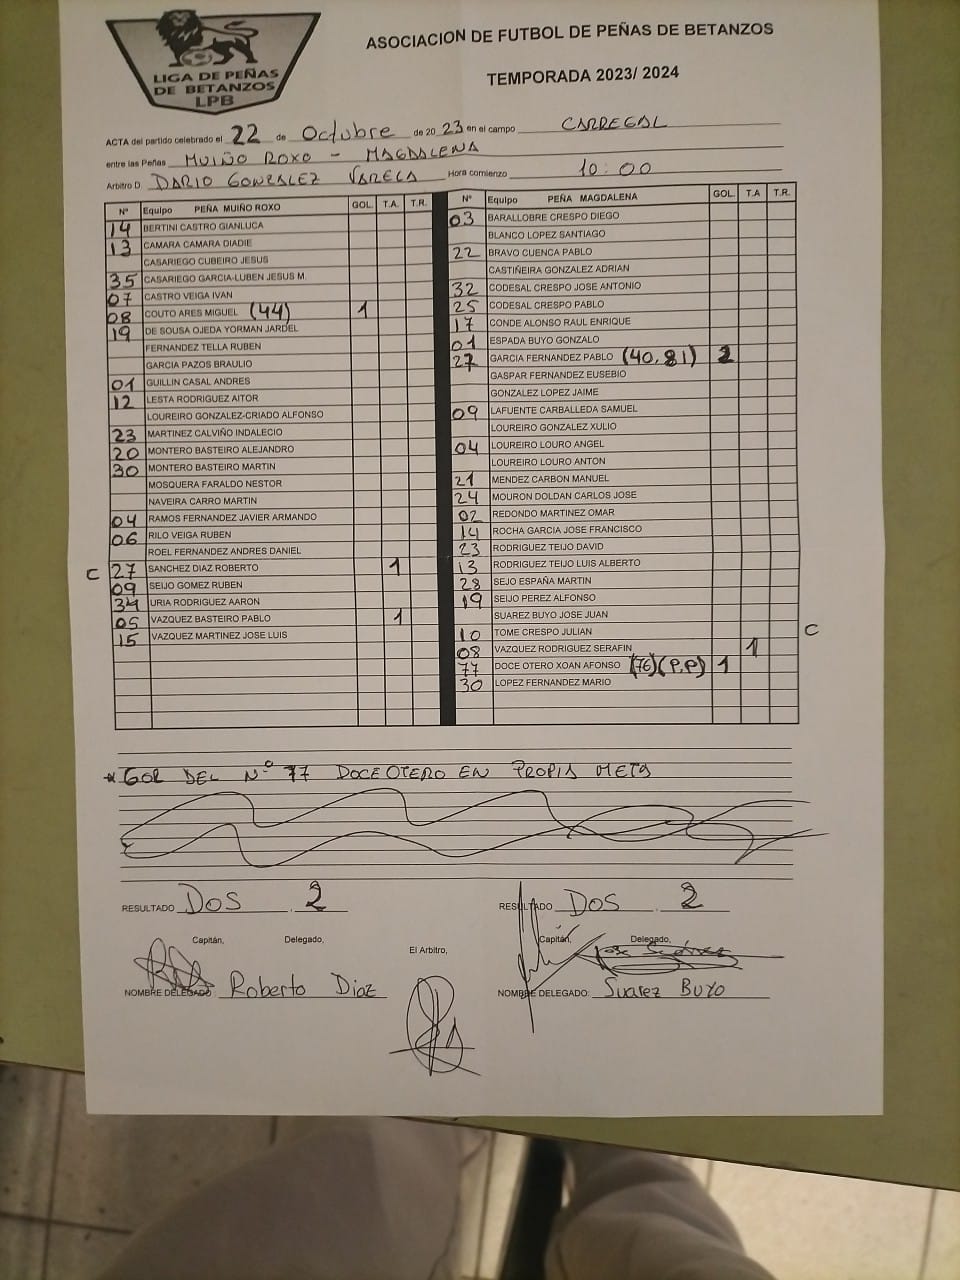 LIGA DE PEÑAS
DE BETANZOS
LPB
ASOCIACION DE FUTBOL DE PEÑAS DE BETANZOS
TEMPORADA 2023/ 2024
ACTA del partido celebrado el 22 de Octubre de 2023 en el campo CARREGAL
entre las Peñas MUIÑO ROXO - MAGDALENA
Arbitro D. DARIO GONZALEZ VARELA Hora comienzo 10:00
Nº Equipo PEÑA MUIÑO ROXO GOL. T.A. T.R.
14 BERTINI CASTRO GIANLUCA
13 CAMARA CAMARA DIADIE
CASARIEGO CUBEIRO JESUS
35 CASARIEGO GARCIA-LUBEN JESUS M.
07 CASTRO VEIGA IVAN
08 COUTO ARES MIGUEL (44) 1
19 DE SOUSA OJEDA YORMAN JARDEL
FERNANDEZ TELLA RUBEN
GARCIA PAZOS BRAULIO
01 GUILLIN CASAL ANDRES
12 LESTA RODRIGUEZ AITOR
LOUREIRO GONZALEZ-CRIADO ALFONSO
23 MARTINEZ CALVIÑO INDALECIO
20 MONTERO BASTEIRO ALEJANDRO
30 MONTERO BASTEIRO MARTIN
MOSQUERA FARALDO NESTOR
NAVEIRA CARRO MARTIN
04 RAMOS FERNANDEZ JAVIER ARMANDO
06 RILO VEIGA RUBEN
ROEL FERNANDEZ ANDRES DANIEL
C 27 SANCHEZ DIAZ ROBERTO 1
09 SEIJO GOMEZ RUBEN
34 URIA RODRIGUEZ AARON
05 VAZQUEZ BASTEIRO PABLO 1
15 VAZQUEZ MARTINEZ JOSE LUIS
Nº Equipo PEÑA MAGDALENA GOL. T.A T.R.
03 BARALLOBRE CRESPO DIEGO
BLANCO LOPEZ SANTIAGO
22 BRAVO CUENCA PABLO
CASTIÑEIRA GONZALEZ ADRIAN
32 CODESAL CRESPO JOSE ANTONIO
25 CODESAL CRESPO PABLO
17 CONDE ALONSO RAUL ENRIQUE
01 ESPADA BUYO GONZALO
27 GARCIA FERNANDEZ PABLO (40,81) 2
GASPAR FERNANDEZ EUSEBIO
GONZALEZ LOPEZ JAIME
09 LAFUENTE CARBALLEDA SAMUEL
LOUREIRO GONZALEZ XULIO
04 LOUREIRO LOURO ANGEL
LOUREIRO LOURO ANTON
21 MENDEZ CARBON MANUEL
24 MOURON DOLDAN CARLOS JOSE
02 REDONDO MARTINEZ OMAR
14 ROCHA GARCIA JOSE FRANCISCO
23 RODRIGUEZ TEIJO DAVID
13 RODRIGUEZ TEIJO LUIS ALBERTO
28 SEIJO ESPAÑA MARTIN
19 SEIJO PEREZ ALFONSO
SUAREZ BUYO JOSE JUAN
10 TOME CRESPO JULIAN C
08 VAZQUEZ RODRIGUEZ SERAFIN 1
77 DOCE OTERO XOAN AFONSO (76)(P.P) 1
30 LOPEZ FERNANDEZ MARIO
* GOL DEL Nº 77 DOCE OTERO EN PROPIA META
RESULTADO DOS . 2 RESULTADO DOS . 2
Capitán, Delegado, El Arbitro, Capitán, Delegado,
NOMBRE DELEGADO: Roberto Diaz NOMBRE DELEGADO: Suarez Buyo